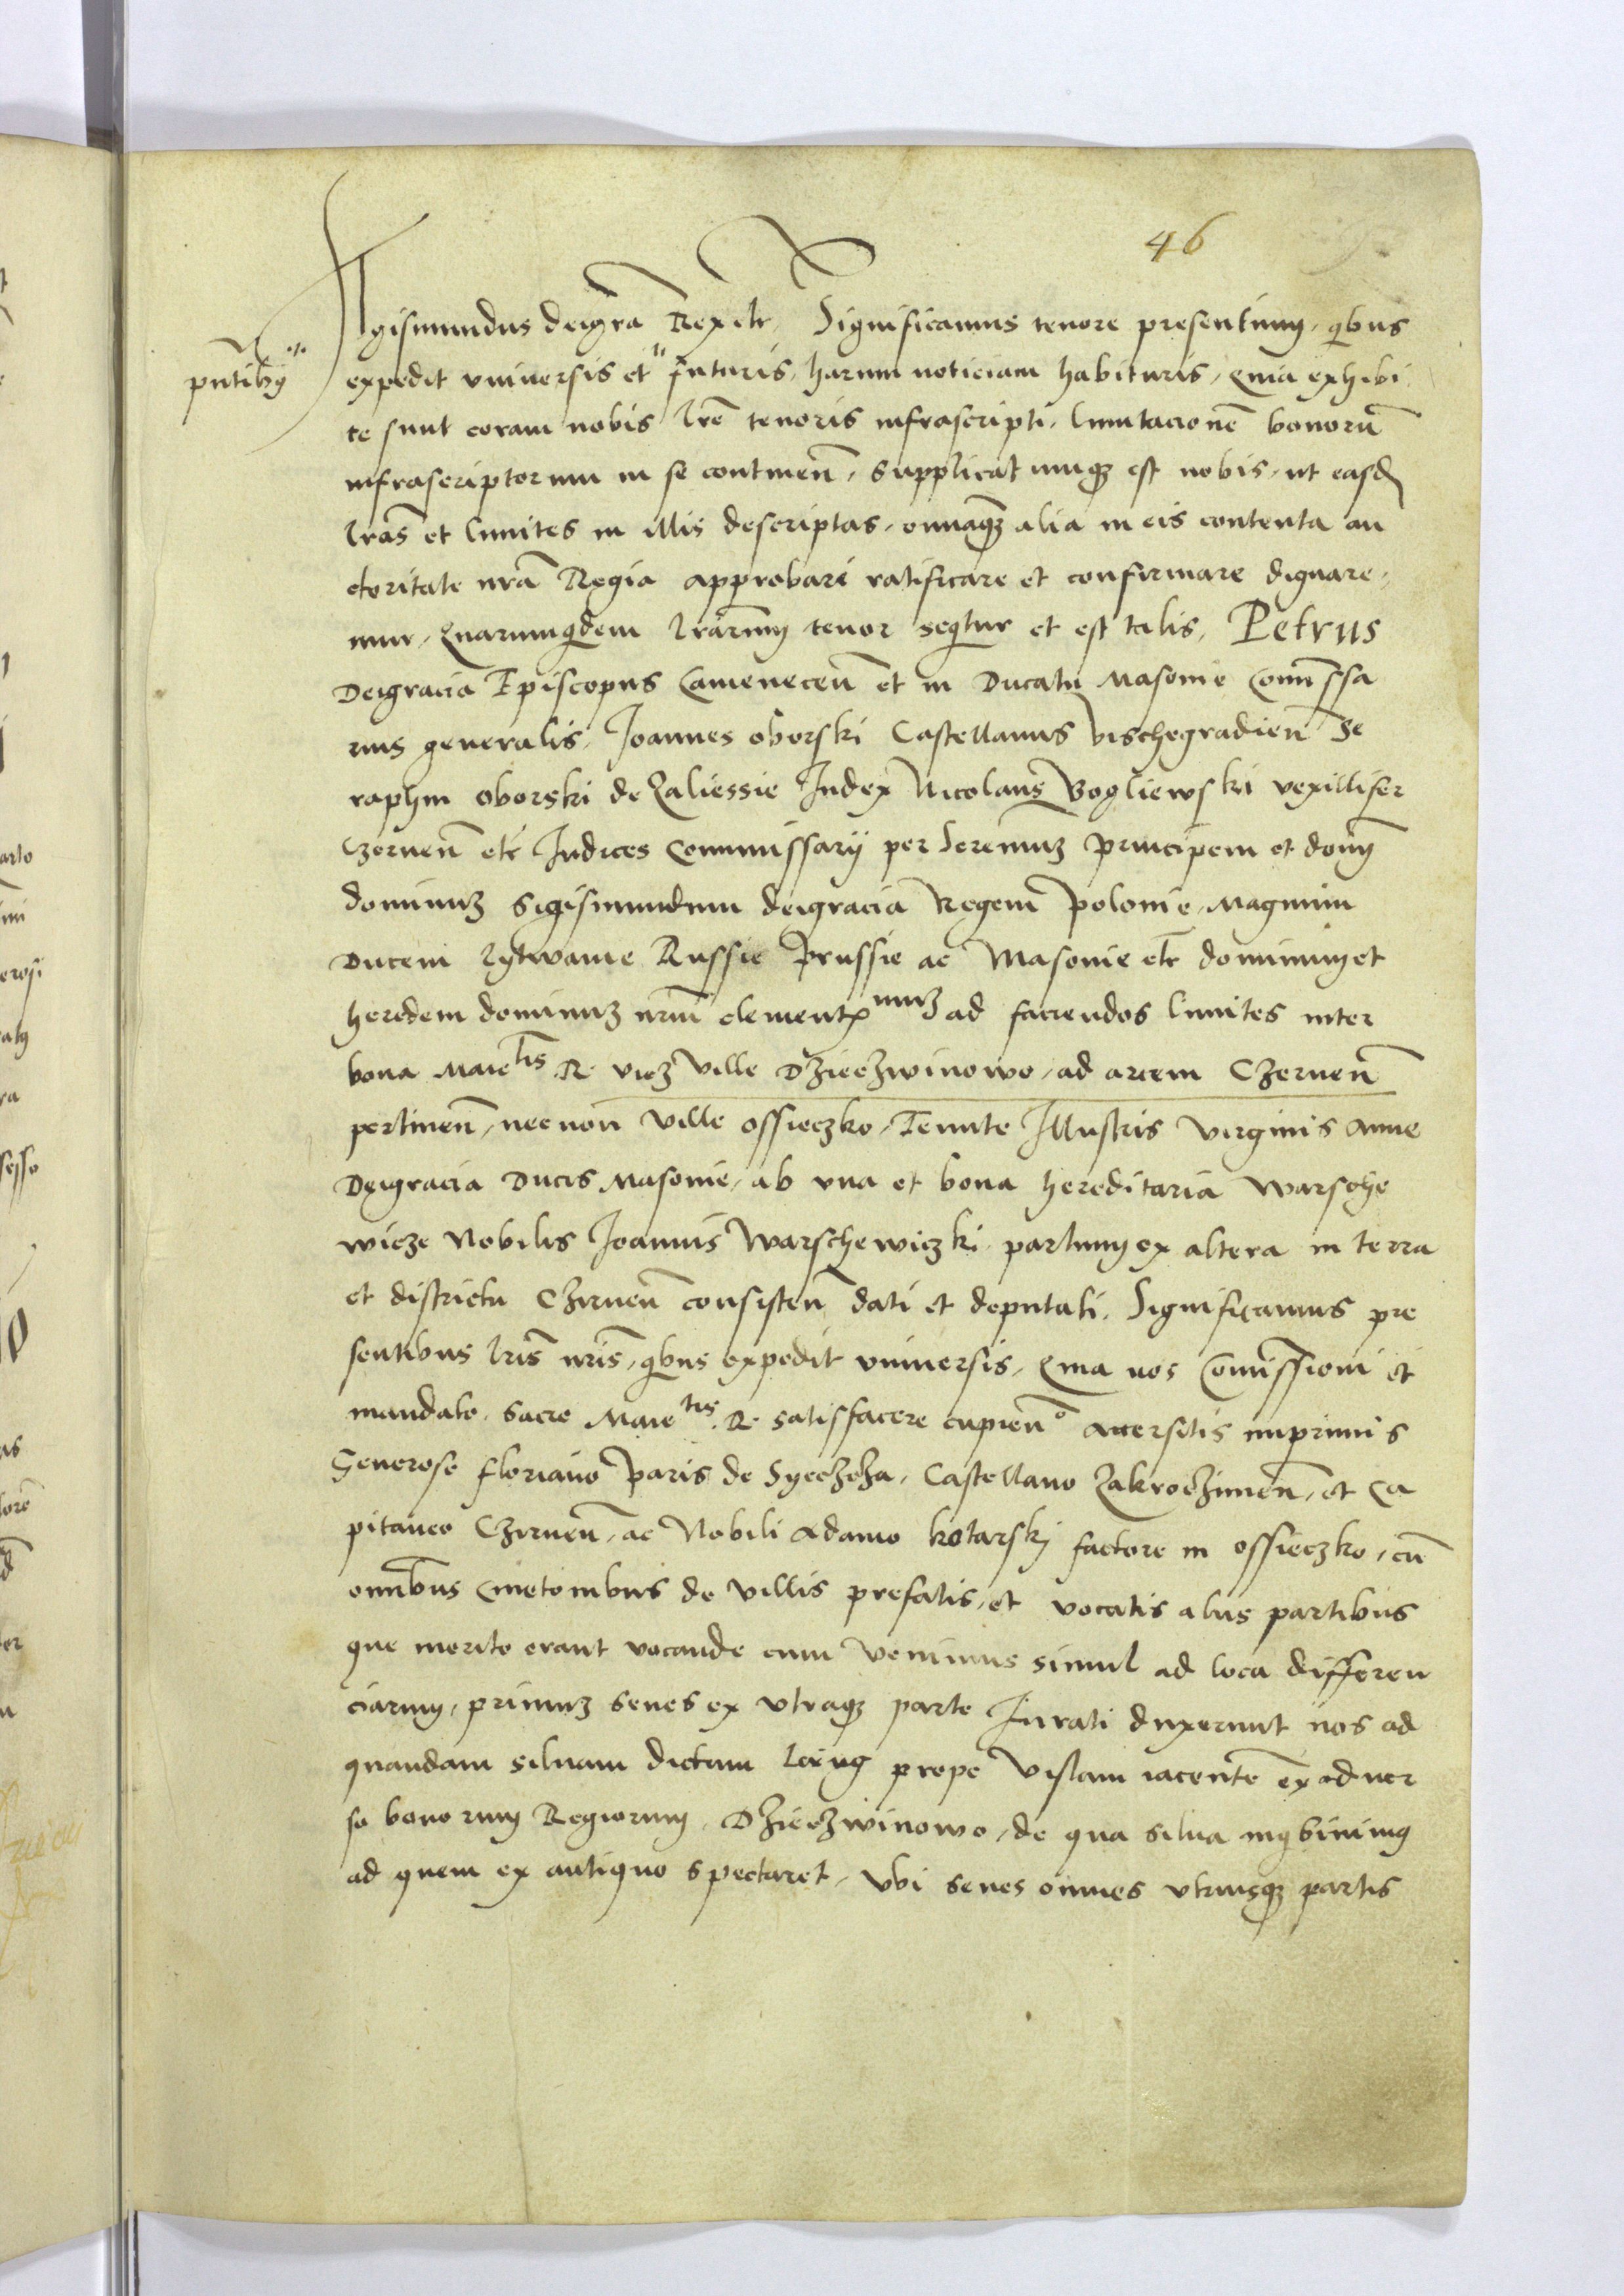 46
Sigismundus dei gra Rex etc. Significamus tenore presentium, qbus
pntibus
expedit universis et futuris, harum noticiam habituris, Quia exhibi
te sunt coram nobis lre tenoris infrascripti, limitacione bonoru
infrascriptorum in se continen, supplicatumq est nobis, ut easd
lras et limites in illis descriptas, omniaq alia in eis contenta au
ctoritate nra Regia approbare ratificare et confirmare dignare
mur, Quarumquidem lrarum tenor sequitur et est talis, Petrus
Dei gracia Episcopus Camenecen et in Ducatu Masovie Comissa
rius generalis, Joannes oborski Castellanus Vischegradien Se
raphin oborski de Zaliessie Iudex Nicolaus Bogliewski vexillifer
Czernen etc Iudices Commissarii per Serenimuz principem et domi
dominuz Sigismundum dei gracia Regem Polonie, Magnum
Ducem Lytwanie Russie Prussie ac Masovie etc dominum et
heredem dominuz nrm clementx muz ad faciendos limites inter
bona Maietis R. viez Ville Dzieczwinowo, ad arcem Czernen
pertinen, necnon Ville ossieczko, Tenute Illustris virginis Anne
Dei gracia Ducis Masovie, ab una et bona hereditaria Warsche
wicze Nobilis Joannis Warschewiczki partium ex altera in terra
et districtu Czirnen consisten dati et deputati, Significamus pre
sentibus lris nris, qbus expedit universis, Quia nos Comissioni et
mandato Sacre Maietis R. satisfacere cupien accersitis inprimis
Generoso floriano Paris de Syeczcza, Castellano Zakroczimen, et Ca
pitaneo Czirnen, ac Nobili Adamo kotarskj factore in ossieczko, cu
omibus Cmetonibus de Villis prefatis, et vocatis aliis partibus
que merito erant vocande cum Venimus simul ad loca differen
ciarum, primuz senes ex utraq parte Iurati duxerunt nos ad
quandam siluam dictam prope Vislam iacente ex adver
so bonorum Regiorum Dzieczwinowo, de qua silva inqbivimus
ad quem ex antiquo spectaret, Ubi senes omnes utriusq partis